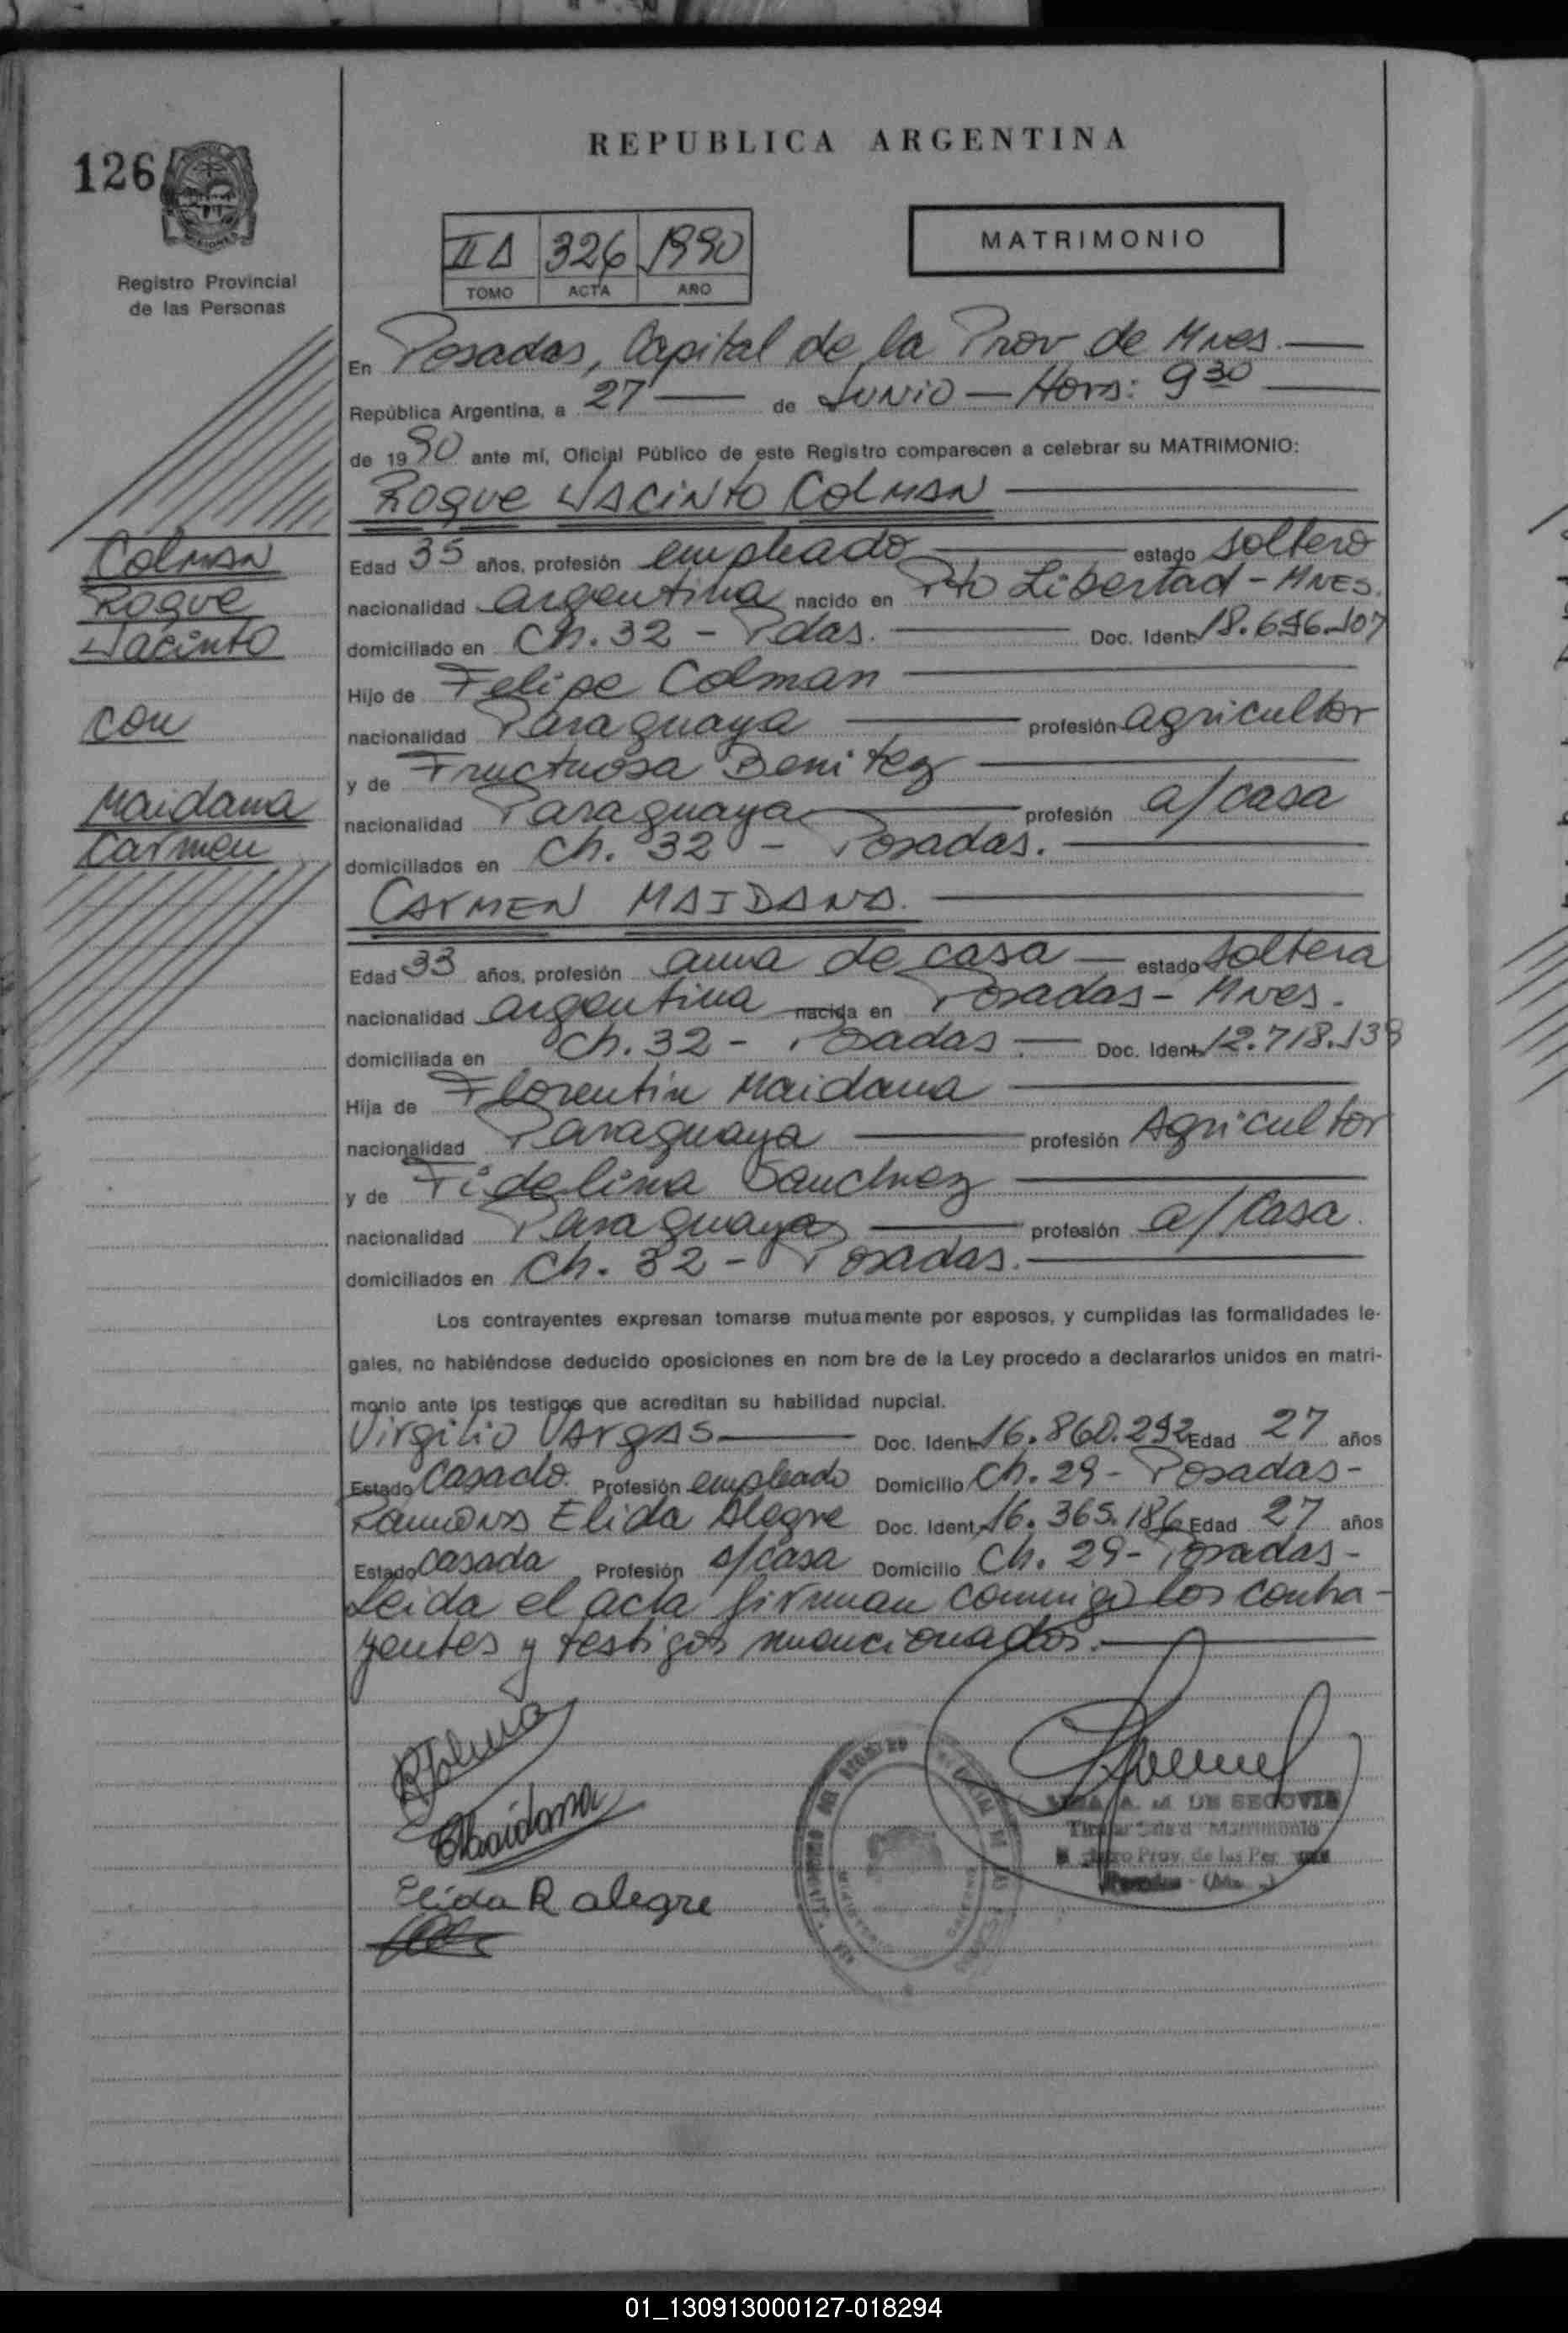 REPUBLICA ARGENTINA
126
Registro Provincial
de las Personas
II A 326 1990
TOMO ACTA AÑO
MATRIMONIO
En Posadas, Capital de la Prov de Mnes.
República Argentina, a 27 de Junio - Hora: 9 30
de 1990 ante mí, Oficial Público de este Registro comparecen a celebrar su MATRIMONIO:
Roque Jacinto Colman
Edad 35 años, profesión empleado estado soltero
nacionalidad argentina nacido en Pto Libertad - Mnes.
domiciliado en Ch. 32 - Pdas. Doc. Ident.
Hijo de Felipe Colman
nacionalidad Paraguaya profesión agricultor
y de Fructuosa Benitez
nacionalidad Paraguaya profesión a/casa
domiciliados en Ch. 32 - Posadas.
Colman
Roque
Jacinto
con
Maidana
Carmen
Carmen Maidana.
Edad 33 años, profesión ama de casa - estado soltera
nacionalidad argentina nacida en Posadas - Mnes.
domiciliada en Ch. 32 - Posadas. Doc. Ident.
Hija de Florentin Maidana
nacionalidad Paraguaya profesión Agricultor
y de Fidelina Sanchez
nacionalidad Paraguaya profesión a/casa.
domiciliados en Ch. 32 - Posadas.
Los contrayentes expresan tomarse mutuamente por esposos, y cumplidas las formalidades le-
gales, no habiéndose deducido oposiciones en nom bre de la Ley procedo a declararlos unidos en matri-
monio ante los testigos que acreditan su habilidad nupcial.
Virgilio Vargas Doc. Ident. 16.860.292 Edad 27 años
Estado Casado. Profesión empleado Domicilio Ch. 29 - Posadas -
Ramona Elida Alegre Doc. Ident. 16.365.186 Edad 27 años
Estado casada Profesión a/casa Domicilio Ch. 29 - Posadas -
Leida el acta firman conmigo los contra-
yentes y testigos mencionados.
RColman
CMaidana
Elida R alegre
A. M. DE SEGOVIA
Matrimonio
Prov. de las Per
01_130913000127-018294